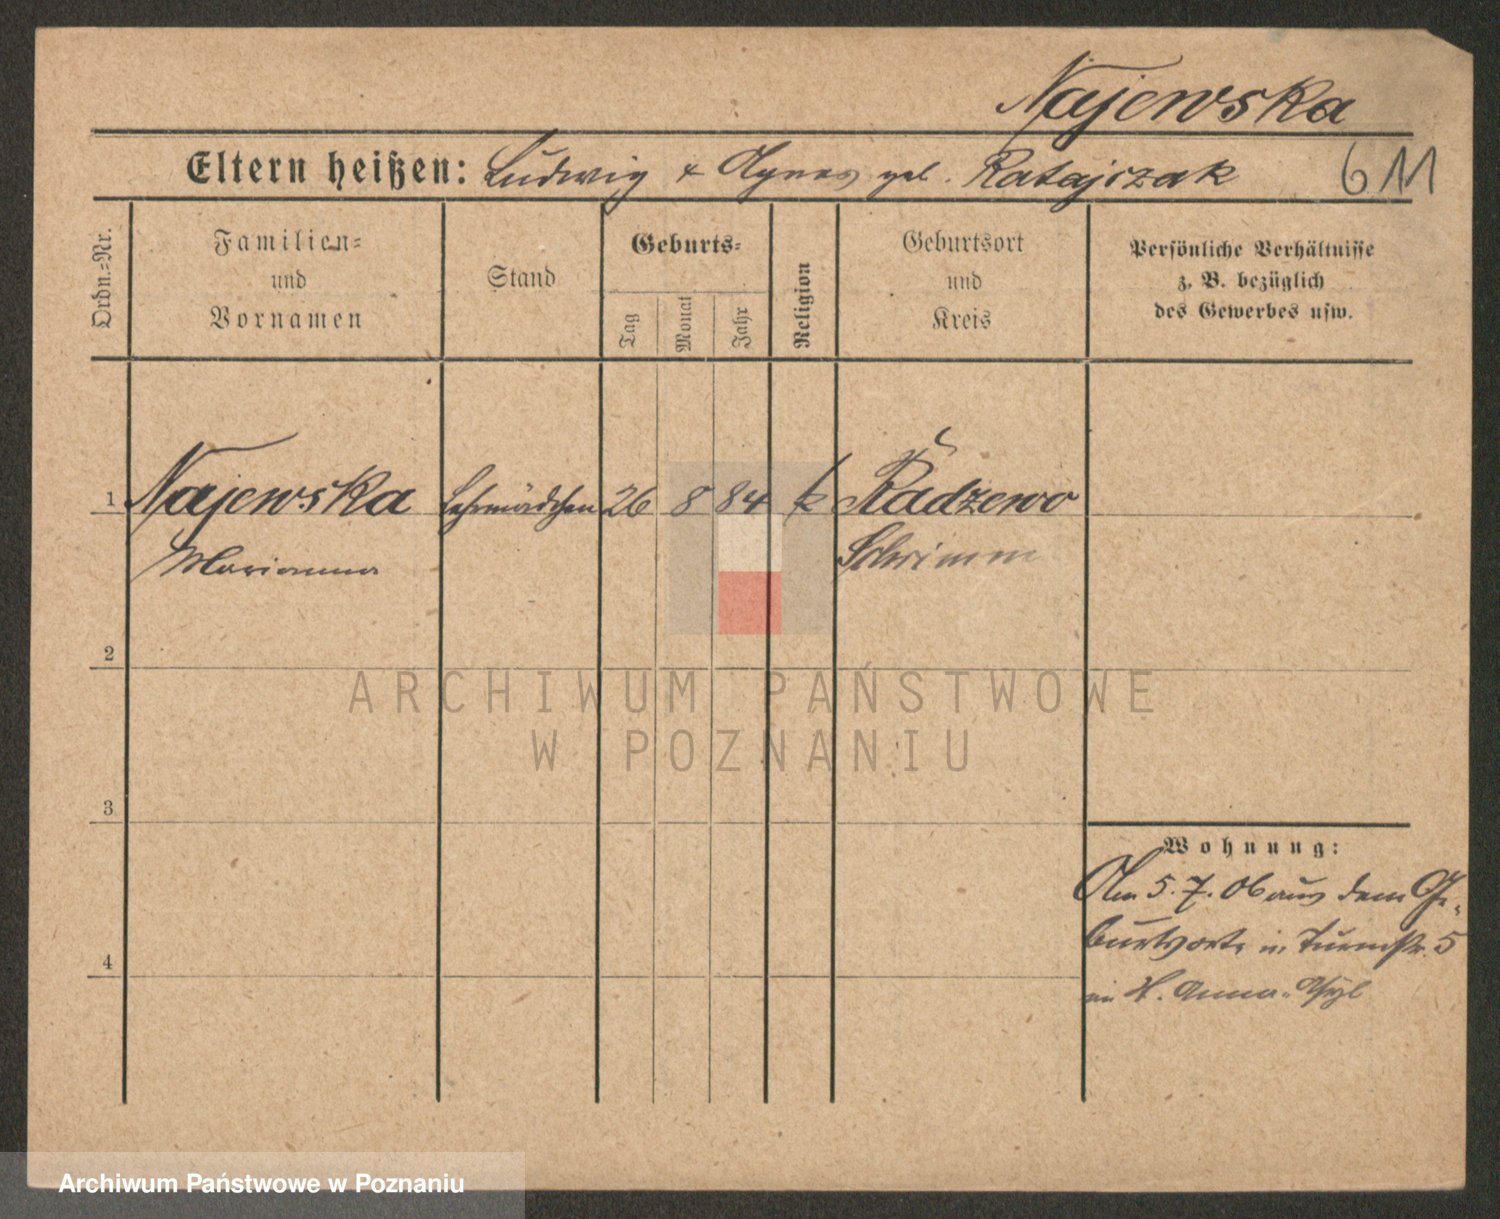 Najewska
Eltern heißen: Ludwig & Agnes geb. Ratajczak
611
Ordn.=Nr.
Familien=
und
Vornamen
Stand
Geburts=
Tag
Monat
Jahr
Religion
Geburtsort
und
Kreis
Persönliche Verhältnisse
z. B. bezüglich
des Gewerbes usw.
1 Najewska Lehrmädchen 26 8 84 k Radzewo
Marianna Schrimm
2
3
4
Wohnung:
Am 5.7.06 aus dem Ge-
burtsorte in Turmstr. 5
im St. Anna-Asyl
ARCHIWUM PAŃSTWOWE
W POZNANIU
Archiwum Państwowe w Poznaniu